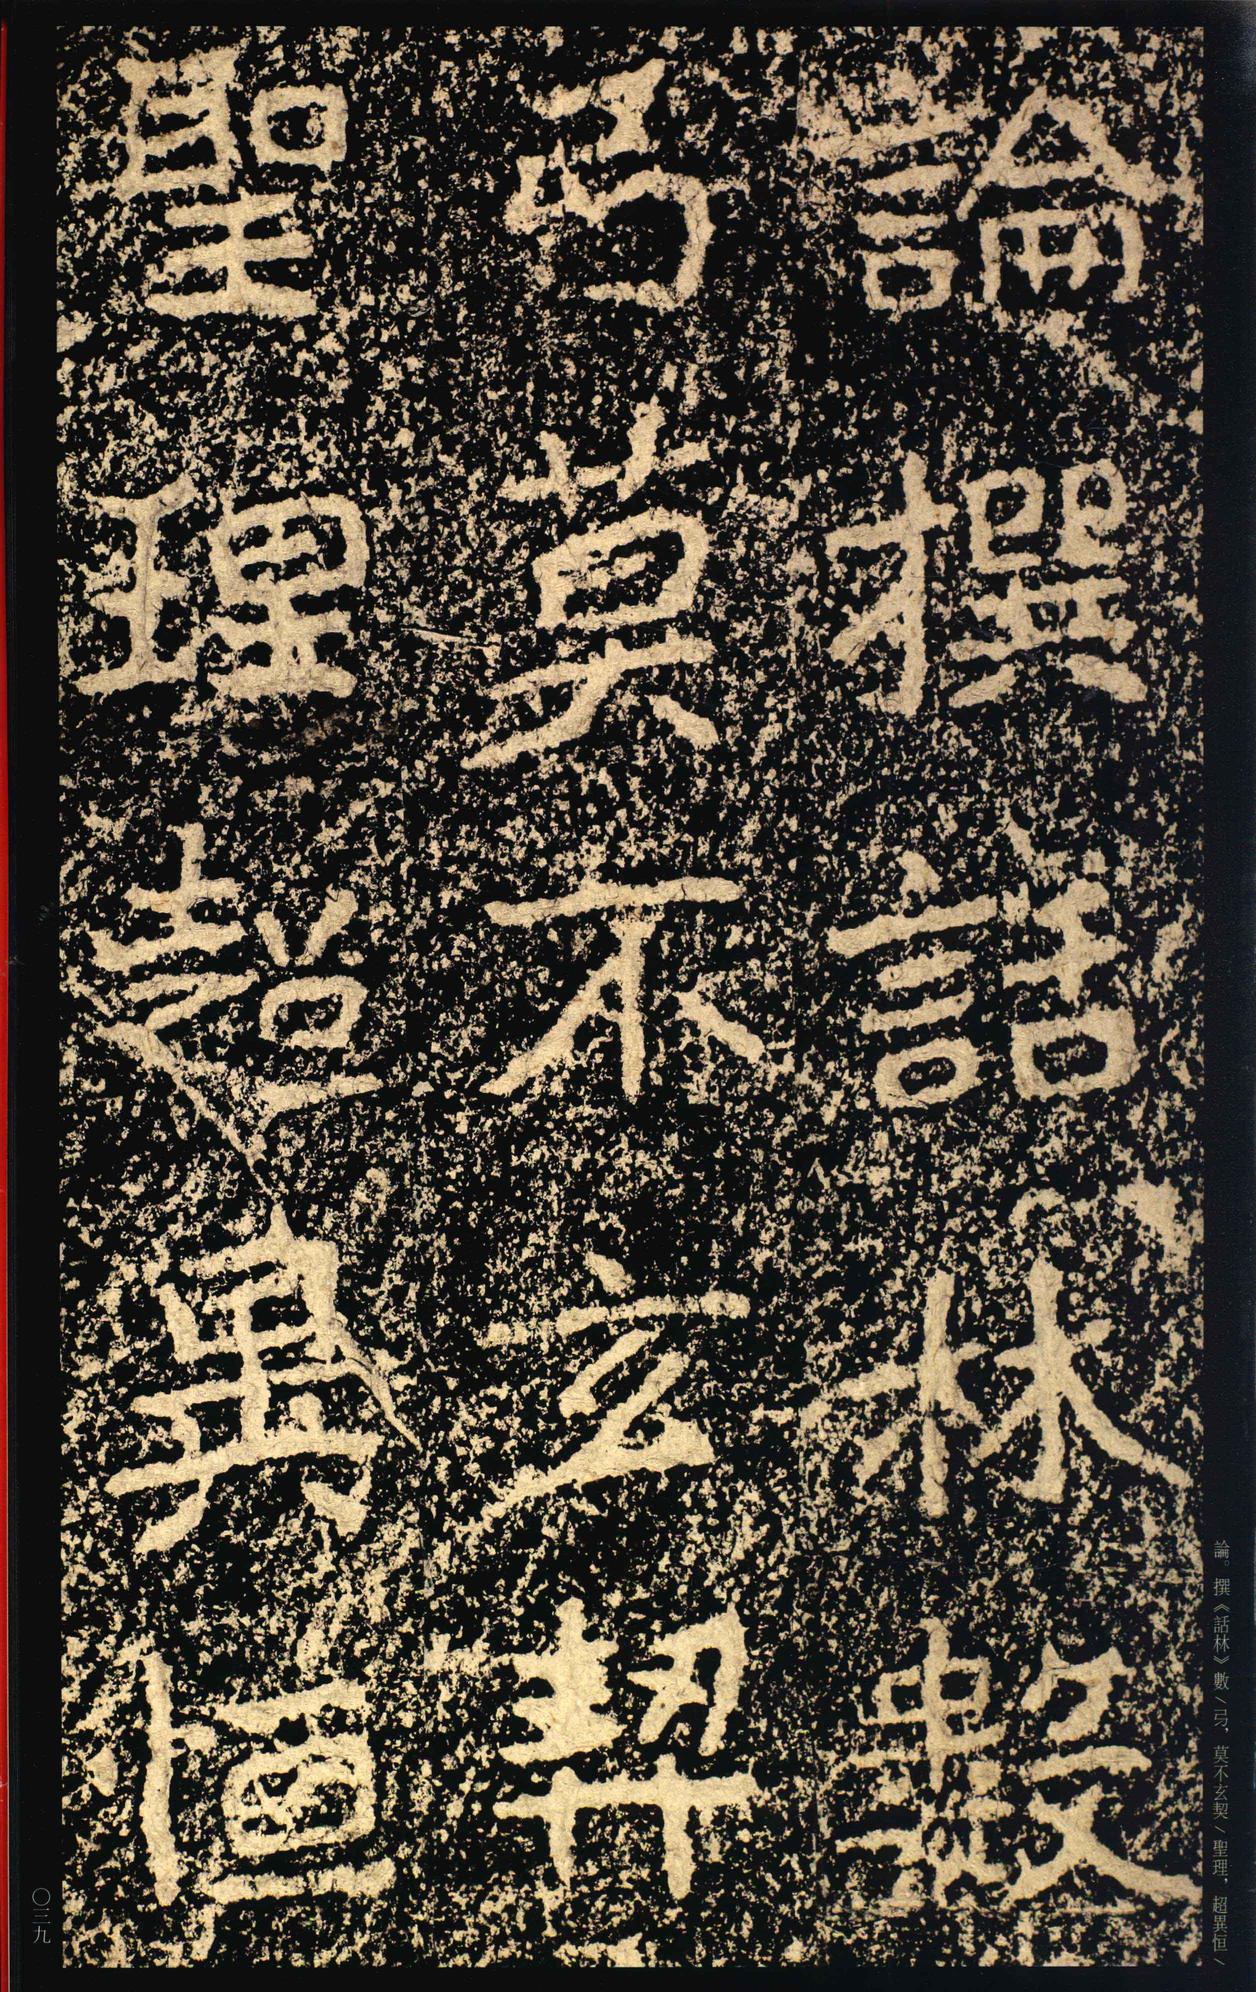 論撰話林數
弓莫不玄契
聖理超異恒
論。撰《話林》數／弓，莫不玄契／聖理，超異恒／
〇三九